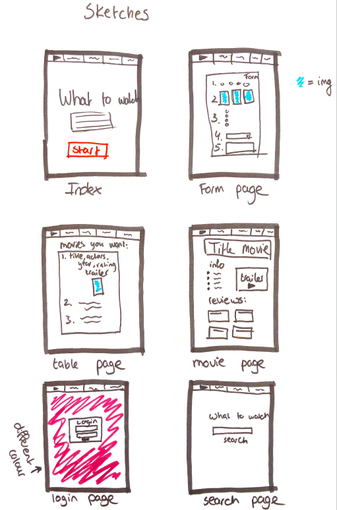 Sketches
What to watch
Start
Index
Form
1.
2.
3.
4.
5.
= img
Form page
movies you want:
1. title, actors,
year, rating
trailer
2.
3.
table page
Title movie
info
trailer
reviews:
movie page
Login
different
colour
login page
What to watch
search
search page